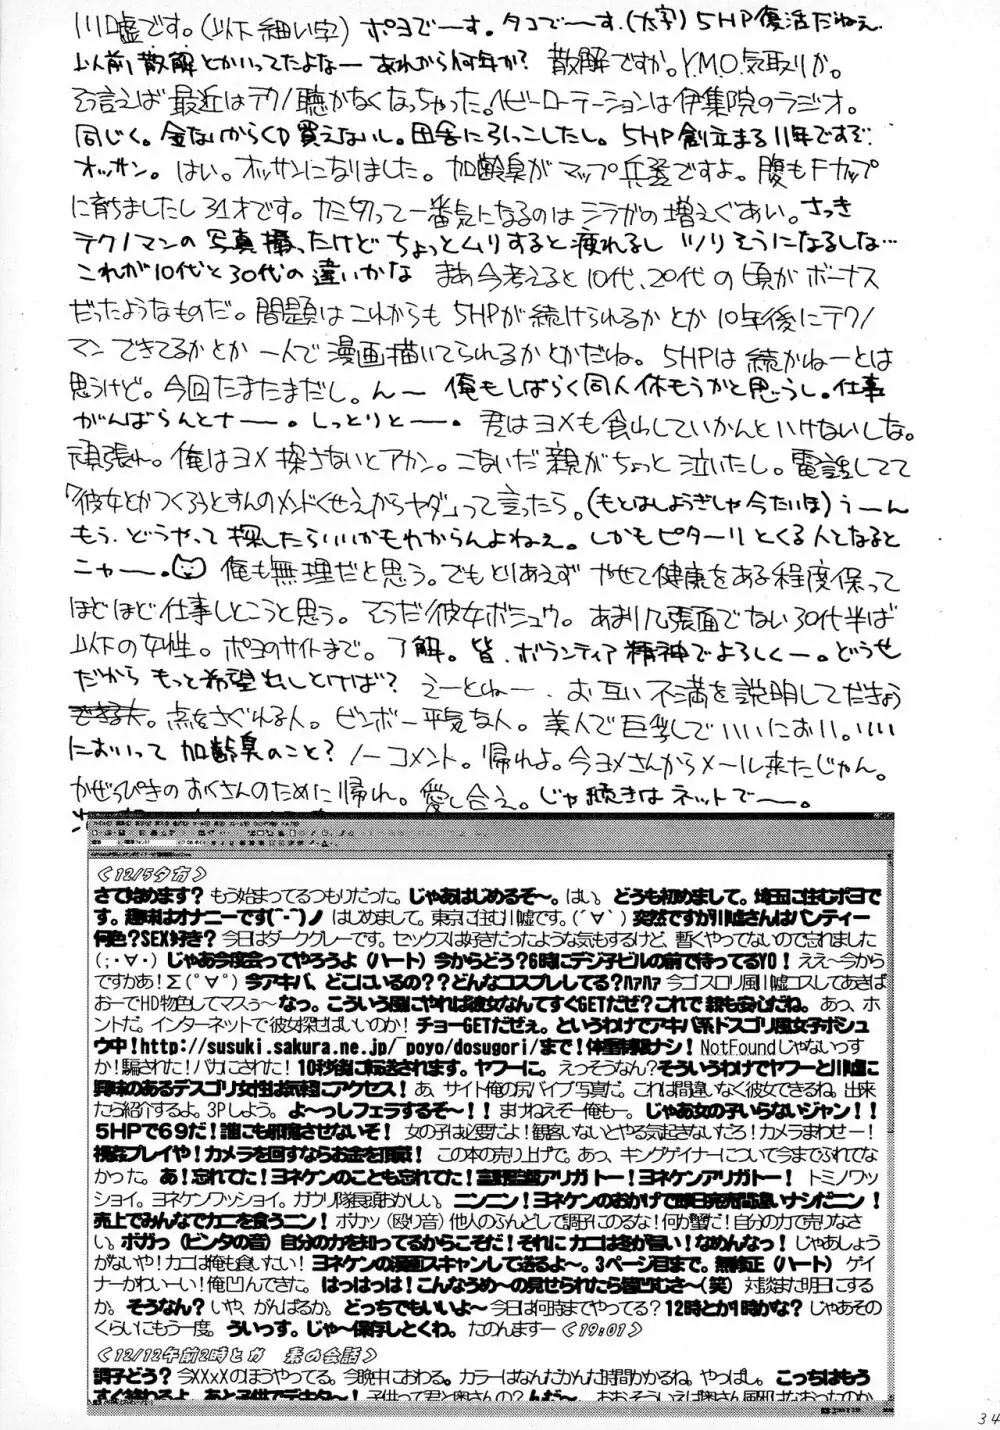 川嘘です。(以下細い字) ポヨでーす。タコでーす。(太字) 5HP復活だねぇ
以前、散解とかいってたよなー あれから何年か? 散解ですか。Y.M.O.気取りか。
そう言えば最近はテクノ聴かなくなっちゃった。ヘビーローテーションは伊集院のラジオ。
同じく。金ないからCD買えないし。田舎にひっこしたし。5HP創立まる11年ですぞ。
オッサン。はい。オッサンになりました。加齢臭がマップ兵器ですよ。腹もFカップ
に育ちましたし31才です。カミ切って一番気になるのはシラガの増えぐあい。さっき
テクノマンの写真撮ったけどちょっとムリすると疲れるし ツリそうになるしな…
これが10代と30代の違いかな まあ今考えると10代、20代の頃がボーナス
だったようなものだ。問題はこれからも5HPが続けられるかとか10年後にテクノ
マンできてるかとか 一人で漫画描いてられるかとかだね。5HPは続かねーとは
思うけど。今回たまたまだし。んー 俺もしばらく同人休もうかと思うし。仕事
がんばらんとナー。しっとりとー。君はヨメも食わしていかんといけないしな。
頑張れ。俺はヨメ探さないとアカン。こないだ親がちょっと泣いたし。電話してて
「彼女とかつくろうとすんのメンドくせえからヤダ」って言ったら。(もとはしょうぎしゃ今たいほ) うーん
もう、どうやって探したらいいかもわからんよねぇ。しかもピターリとくる人となると
ニャー。俺も無理だと思う。でもとりあえず やせて健康をある程度保って
ほどほど仕事しとこうと思う。そうだ彼女ボシュウ。あまり几張面でない30代半ば
以下の女性。ポヨのサイトまで。了解。皆、ボランティア精神でよろしくー。どうせ
だから もっと希望出しとけば? えーとねー、お互い不満を説明してだきょう
点をさぐれる人。ビンボー平気な人。美人で巨乳でいいにおい。いい
においって加齢臭のこと? ノーコメント。帰れよ。今ヨメさんからメール来たじゃん。
かぜっぴきのおくさんのために帰れ。愛し合え。じゃ続きはネットでー。
<12/5夕方>
さて始めます? もう始まってるつもりだった。じゃあはじめるぞ〜。はい。どうも初めまして。埼玉に住むポヨで
す。趣味はオナニーです(￣-￣)ノ はじめまして。東京に住む川嘘です。(´∀`) 突然ですが川嘘さんはパンティー
何色?SEX好き? 今日はダークグレーです。セックスは好きだったような気もするけど、暫くやってないので忘れました
(;・∀・) じゃあ今度会ってやろうよ (ハート) 今からどう?6時にデジ子ビルの前で待ってるYO! ええ〜今から
ですかあ!Σ(ﾟ∀ﾟ) 今アキバ、どこにいるの??どんなコスプレしてる?ﾊｧﾊｧ 今ゴスロリ風川嘘コスしてあきば
おーでHD物色してマスぅ〜 なっ。こういう風にやれば彼女なんてすぐGETだぜ?これで親も安心だね。あっ、ホ
ントだ。インターネットで彼女探せばいいのか! チョーGETだぜぇ。というわけでアキバ系ドスゴリ風女子ボシュ
ウ中!http://susuki.sakura.ne.jp/~poyo/dosugori/まで!体重制限ナシ! NotFoundじゃないっす
か!騙された!バカにされた! 10秒後に転送されます。ヤフーに。えっそうなん?そういうわけでヤフーと川嘘に
興味のあるデスゴリ女性は気軽にアクセス! あ、サイト俺の尻バイブ写真だ。これは間違いなく彼女できるね。出来
たら紹介するよ。3Pしよう。よ〜っしフェラするぞ〜!! まけねえぞ〜俺も〜。じゃあ女の子いらないジャン!!
5HPで69だ!誰にも邪魔させないぞ! 女の子は必要だよ!観客いないとやる気起きないだろ!カメラまわせー!
視姦プレイや!カメラを回すならお金を頂戴! この本の売り上げで。あっ、キングゲイナーについて今までふれてな
かった。あ!忘れてた!ヨネケンのことも忘れてた!富野監督アリガトー!ヨネケンアリガトー! トミノワッ
ショイ。ヨネケンワッショイ。ガウリ隊長頭おかしい。ニンニン!ヨネケンのおかげで即日完売間違いナシだニン!
売上でみんなでカニを食うニン! ボカッ (殴り音) 他人のふんどしで調子にのるな!何が蟹だ!自分の力で売りなさ
い。ボガっ (ビンタの音) 自分の力を知ってるからこそだ!それにカニは冬が旨い!なめんなっ! じゃあしょう
がないや!カニは俺も食いたい! ヨネケンの漫画スキャンして送るよ〜。3ページ目まで。無修正 (ハート) ゲイ
ナーかわいーい!俺凹んできた。はっはっは!こんなうめ〜の見せられたら皆凹むさ〜(笑) 対談また明日にする
か。そうなん? いや、がんばるか。どっちでもいいよ〜 今日は何時までやってる? 12時とか1時かな? じゃあその
くらいにもう一度。ういっす。じゃ〜保存しとくわ。たのんますー <19:01>
<12/12午前2時とか 素の会話>
調子どう? 今XXxXのほうやってる。今晩中におわる。カラーはなんだかんだ時間かかるね。やっぱし。こっちはもう
すぐ終わるよ。あと子供でデキタ〜! 子供って君と奥さんの? んだ〜。
34